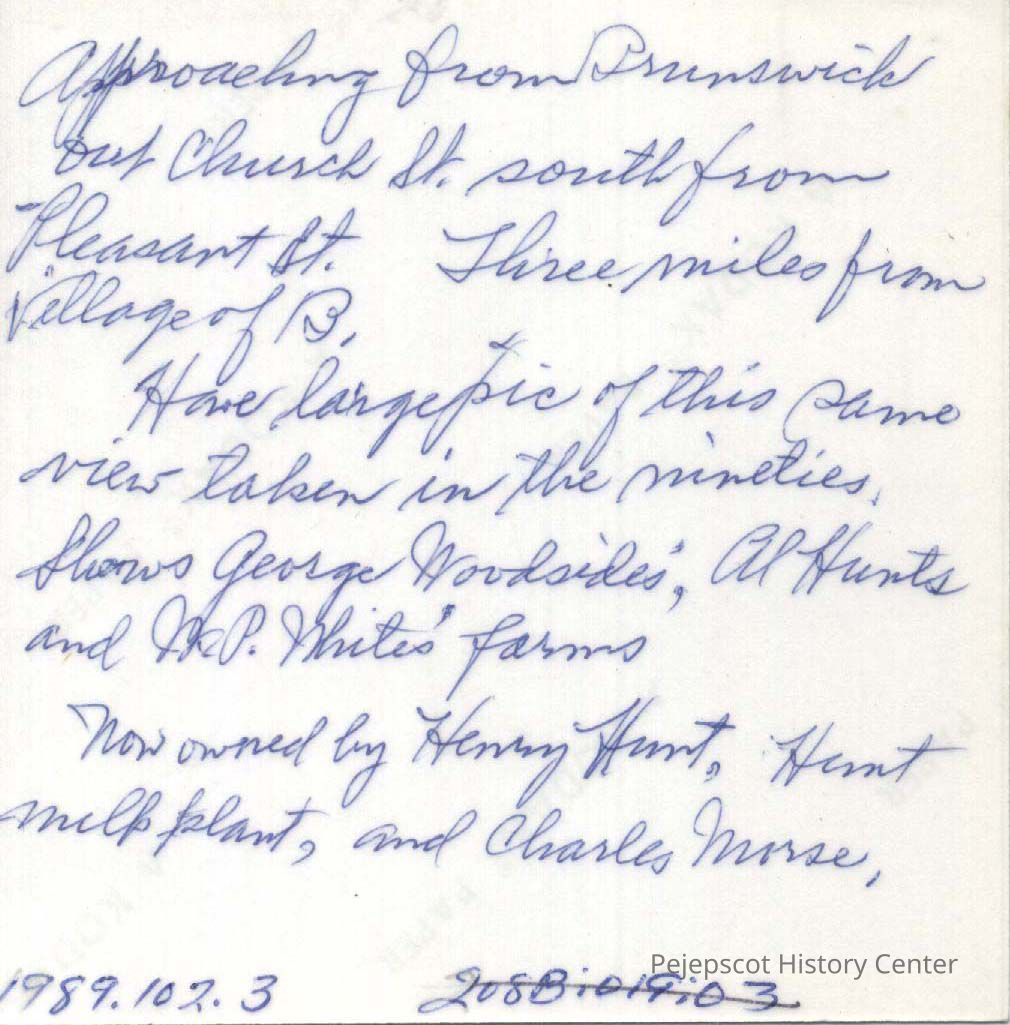 Approaching from Brunswick
out Church St. south from
Pleasant St. Three miles from
Village of B.
Have large pic of this same
view taken in the nineties.
Shows George Woodsides', Al Hunts
and P. Whites' farms
Now owned by Henry Hunt, Hunt
milk plant, and Charles Morse,
Pejepscot History Center
1989.102.3